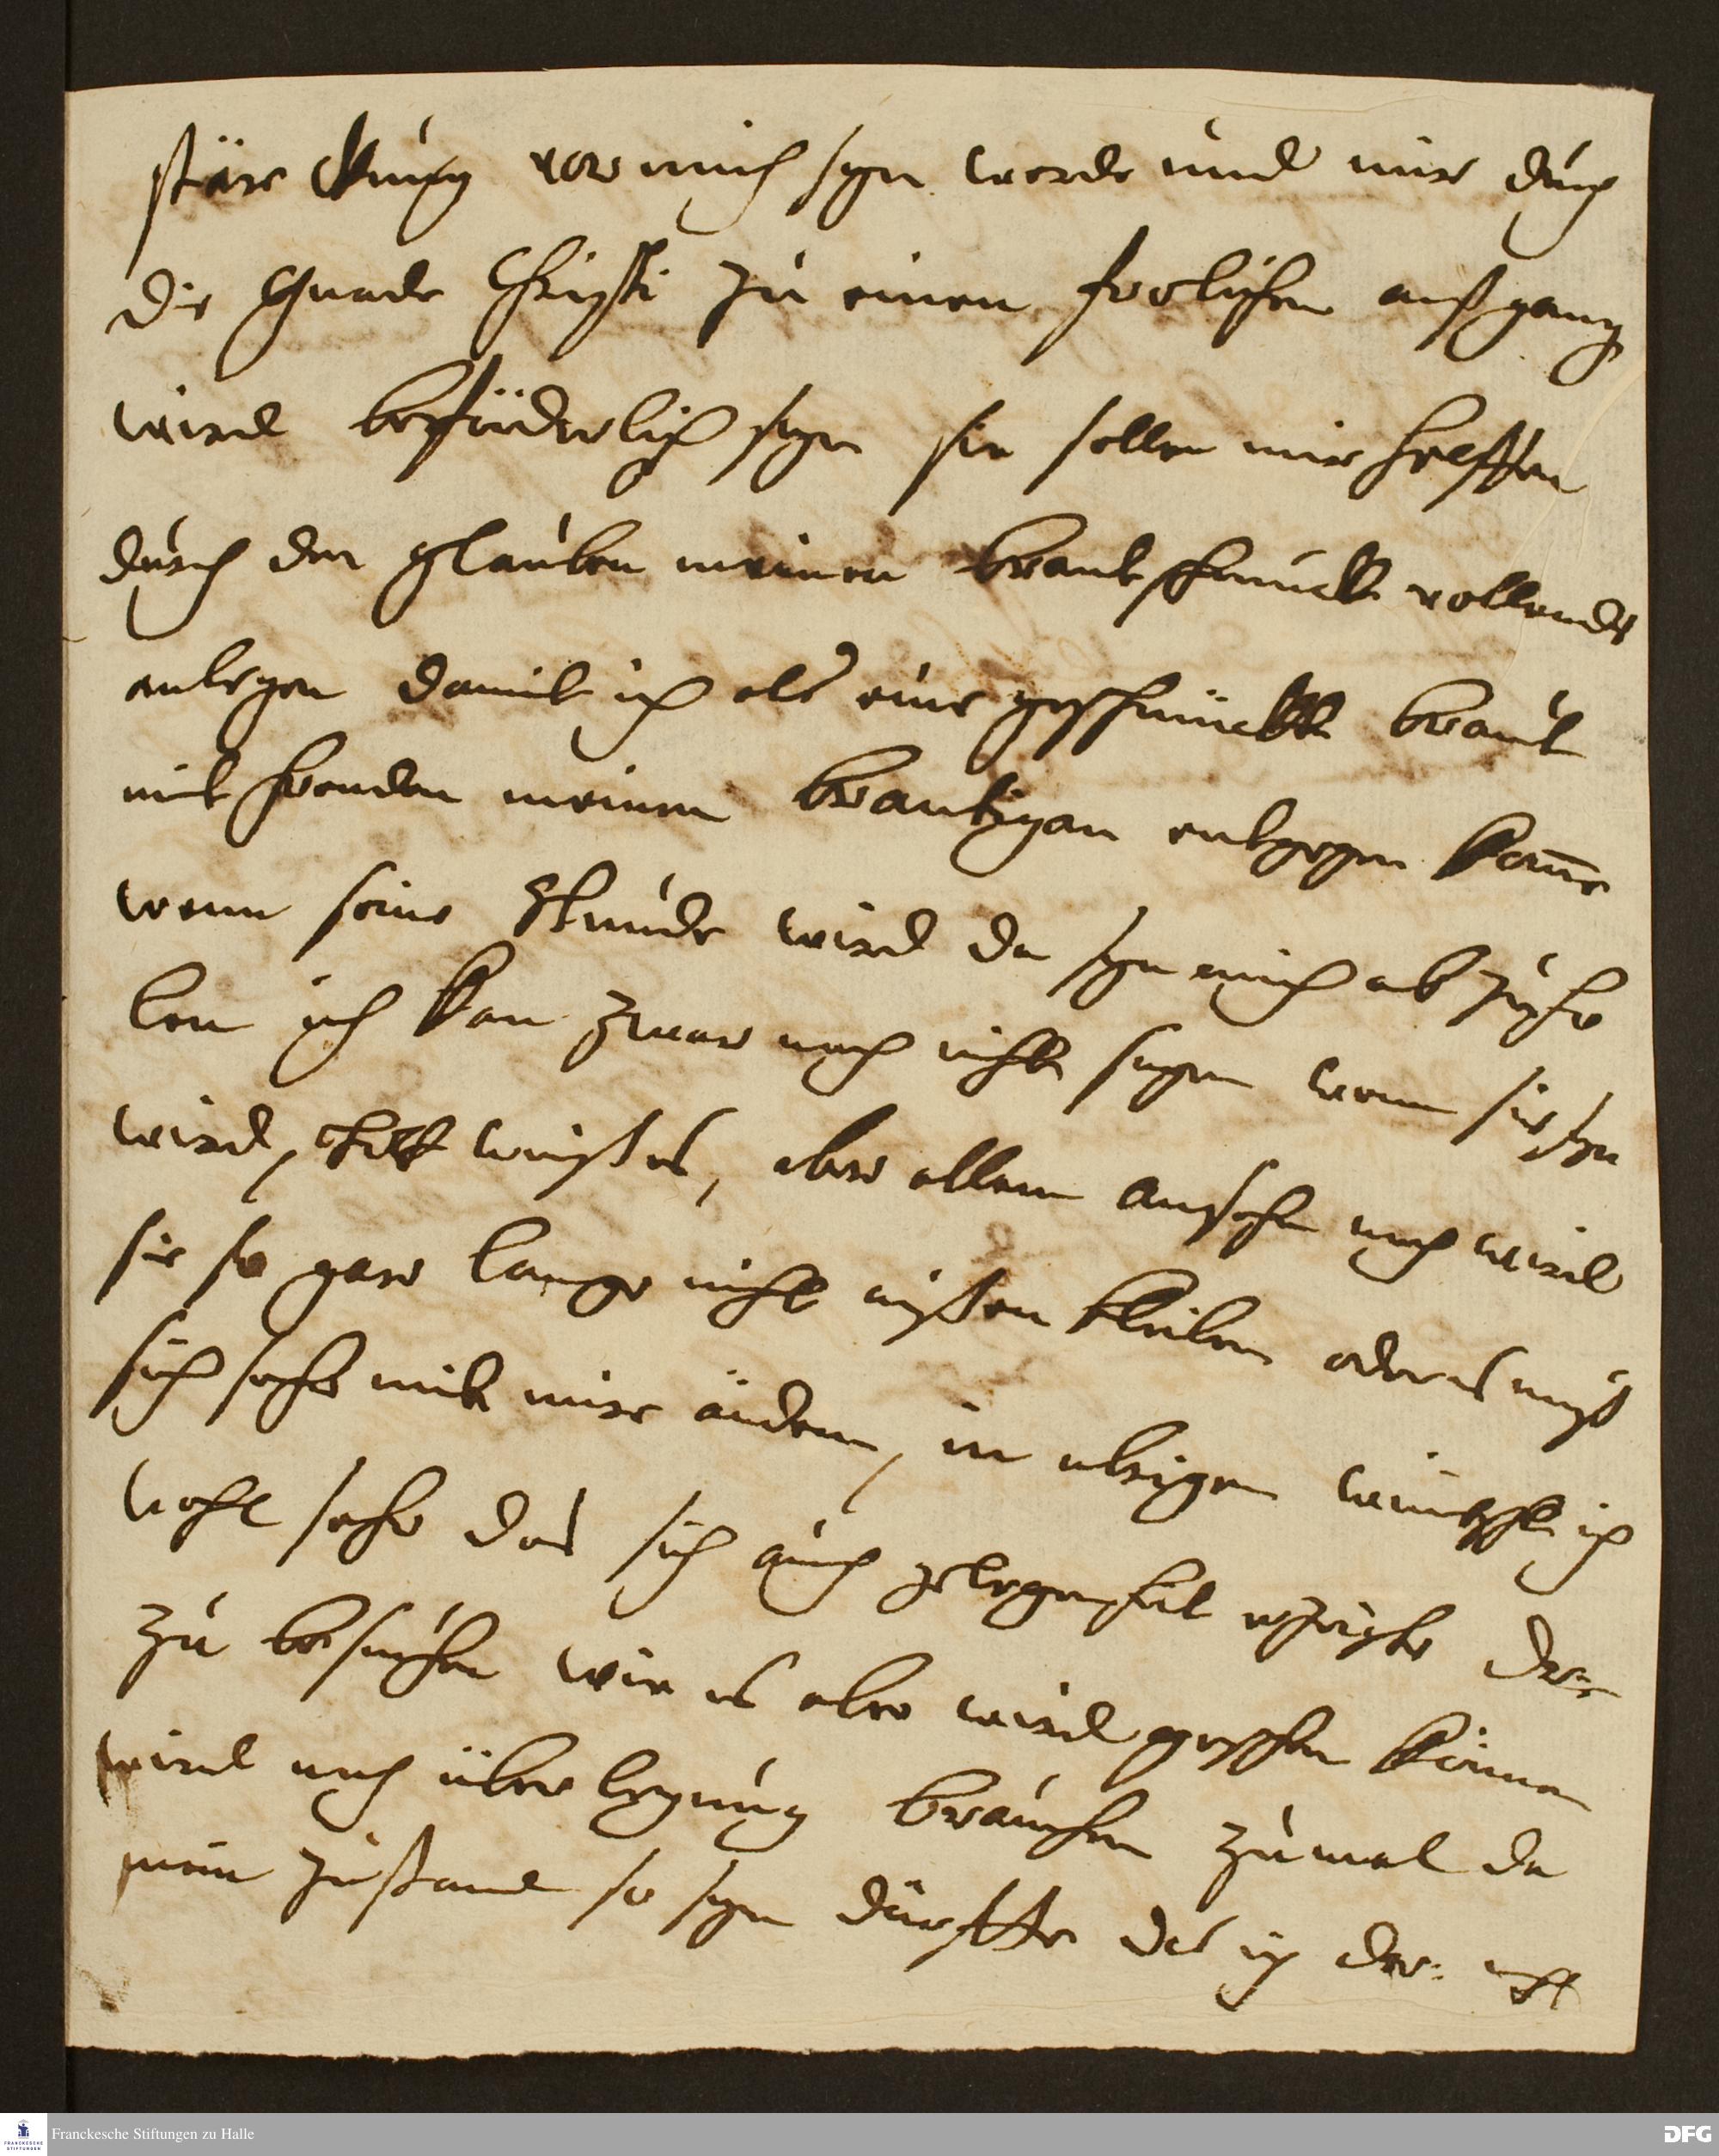 stärckung vor mich seyn werde und mir durch
die Gnade Christi zu einen frolichen ausgang
wird beforderlich seyn sie sollen mir helffen
durch den glauben meinen brautschmuck vollends
anlegen damit ich als eine geschmückte braut
mit freuden meinen brautigan entgegen kom̄e
wenn seine Stunde wird da seyn mich abzuho
len ich kan zwar noch nicht sagen wenn sie seyn
wird, Gott weiß es, aber allem ansehen nach wird
sie so gar lange nicht aussen bleiben oder es muß
sich sehr mit mir ändern, in ubrigen wünscht ich
wohl sehr das sich auch gelegenheit ereigte der=
zu besuchen wie es aber wird geschehen können
wird noch überlegung brauchen zumal da
mein zustand so seyn dürffte das ich der:
Franckesche Stiftungen zu Halle
DFG